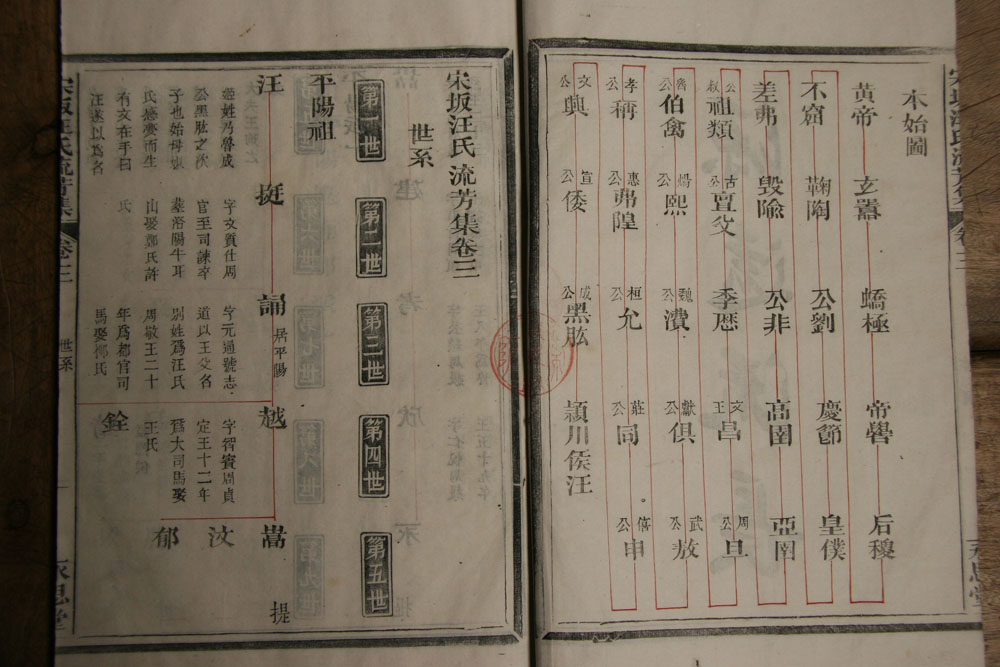 本始圖
黃帝 玄囂 蟜極 帝嚳 后稷
不窟 鞠陶 公劉 慶節 皇僕
差弗 毀隃 公非 高圉 亞圉
叔公祖類 古公亶父 季歷 文王昌 周公旦
魯公伯禽 煬公熙 魏公濆 獻公俱 武公敖
孝公稱 惠公弗隍 桓公允 莊公同 僖公申
文公興 宣公倭 成公黑肱 潁川侯汪
宋坂汪氏流芳集卷三
世系
第一世 第二世 第三世 第四世 第五世
平陽祖
汪 挺 誦 居平陽 越 嵩 提
姬姓乃魯成
公黑肱之次
子也始母姒
氏感夢而生
有文在手曰
汪遂以爲名
字文質仕周
官至司諫卒
葬洛陽牛耳
山娶鄭氏許
氏
字元通號志
道以王父名
別姓爲汪氏
周敬王二十
年爲都官司
馬娶鄒氏
字智賓周貞
定王十二年
爲大司馬娶
王氏
銓
汶
郁
宋坂汪氏流芳集 卷三 世系 一 永思堂